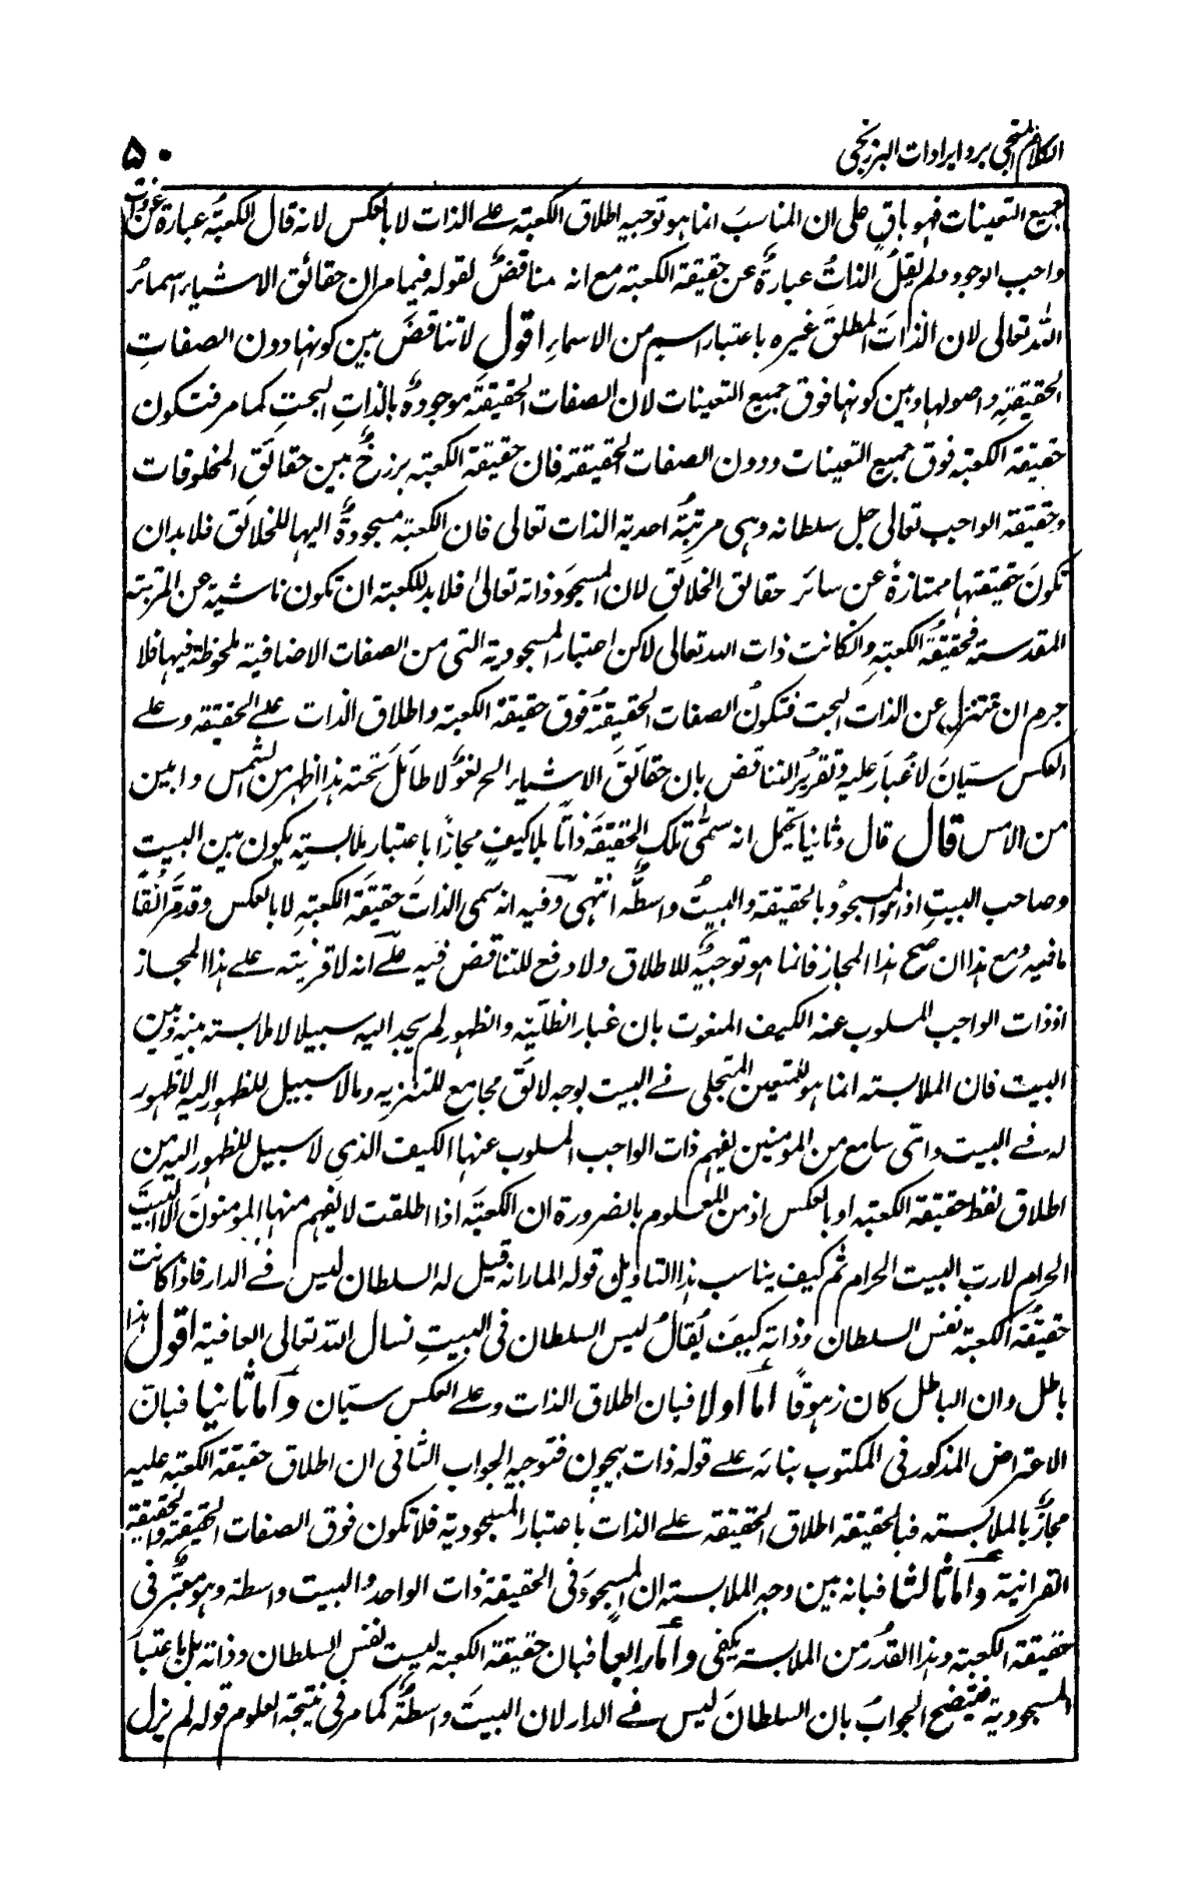 الكلام المنجي برد ايرادات البرزنجي
۵۰
جميع التعينات فهو باقٍ على ان المناسبَ انما هو توجيه اطلاق الكعبة على الذات لا بالعكس لانه قال الكعبةُ عبارة عن ذات
واجب الوجود ولم يقل الذاتُ عبارةٌ عن حقيقة الكعبة مع انه مناقضٌ لقوله فيما مر ان حقائق الاشياء اسماءُ
الله تعالى لان الذاتَ المطلقَ غيره باعتبار اسم من الاسماءِ اقول لا تناقضَ بين كونها دون الصفاتِ
الحقيقةِ واصولها وبين كونها فوق جميع التعينات لان الصفات الحقيقةَ موجودةٌ بالذاتِ البحتِ كما مر فتكون
حقيقة الكعبة فوق جميع التعينات ودون الصفات الحقيقة فان حقيقة الكعبة برزخٌ بين حقائق المخلوقات
وحقيقة الواجب تعالى جل سلطانه وهي مرتبةُ احدية الذات تعالى فان الكعبة مسجودةٌ اليها للخلائق فلا بد ان
تكونَ حقيقتها ممتازةً عن سائر حقائق الخلائق لان المسجودَ ذاته تعالى فلا بد للكعبة ان تكون ناشية عن المرتبة
المقدسة فحقيقةُ الكعبةِ وانكانت ذات الله تعالى لاكن اعتبار المسجودية التي من الصفات الاضافية ملحوظة فيها فلا
جرم ان تتنزل عن الذات البحت فتكونُ الصفات الحقيقةُ فوق حقيقة الكعبة واطلاق الذات على الحقيقة وعلى
العكس سيّانَ لا غُبارَ عليه وتقريرُ التناقض بان حقائقَ الاشياء الخ لغوٌ لا طائلَ تحته هذا اظهر من الشمس وابين
من الامس قال قال وثانيا يحتمل انه سمّى تلك الحقيقةَ ذاتًا بلا كيفٍ مجازًا باعتبار ملابسةٍ يكون بين البيتِ
وصاحب البيتِ اذ هو المسجودُ بالحقيقة والبيتُ واسطةٌ انتهى وفيه انه سمى الذاتَ حقيقةَ الكعبةِ لا بالعكس وقد مرّ انفًا
ما فيه ومع هذا ان صح هذا المجاز فانما هو توجيهٌ للاطلاق ولا دفع للتناقض فيه على انه لا قرينة على هذا المجاز
اذ ذات الواجب المسلوب عنه الكيف المنعوت بان غبار الظلّية والظهور لم يجد اليه سبيلا لا ملابسة بينه وبين
البيت فان الملابسة انما هو للمتعين المتجلي في البيت بوجه لائق مجامع للتنزيه وما لا سبيل للظهور اليه لا ظهور
له في البيت واتى سامع من المومنين يفهم ذات الواجب المسلوب عنها الكيف الذي لا سبيل للظهور اليه من
اطلاق لفظ حقيقة الكعبة او بالعكس اذ من المعلوم بالضرورة ان الكعبَة اذا اطلقت لا يفهم منها المومنون الا البيتَ
الحرام لا ربّ البيت الحرام ثم كيف يناسب هذا التاويل قوله المار انه قيل له السلطان ليس في الدار فاذا كانت
حقيقةُ الكعبة نفس السلطان وذاته كيفَ يُقالُ ليس السلطان في البيتِ نسال الله تعالى العافية اقول هذا
باطل وان الباطل كان زهوقًا اما اولا فبان اطلاق الذات وعلى العكس سيّان واما ثانيا فبان
الاعتراض المذكور في المكتوب بنائه على قوله ذات بيچون فتوجيه الجواب الثاني ان اطلاق حقيقة الكعبة عليه
مجازٌ بالملابسة فبالحقيقة اطلاق الحقيقة على الذات باعتبار المسجودية فلا تكون فوق الصفات الحقيقة والحقيقة
القرانية واما ثالثا فبانه بين وجه الملابسة ان المسجودَ في الحقيقة ذات الواحد والبيت واسطة وهو معتبرٌ في
حقيقة الكعبة وهذا القدرُ من الملابسة يكفي واما رابعا فبان حقيقة الكعبة ليست نفس السلطان وذاته بل باعتبار
المسجودية فيتضح الجوابُ بان السلطانَ ليس في الدار لان البيتَ واسطةٌ كما مر في نتيجة العلوم قوله لم يزل